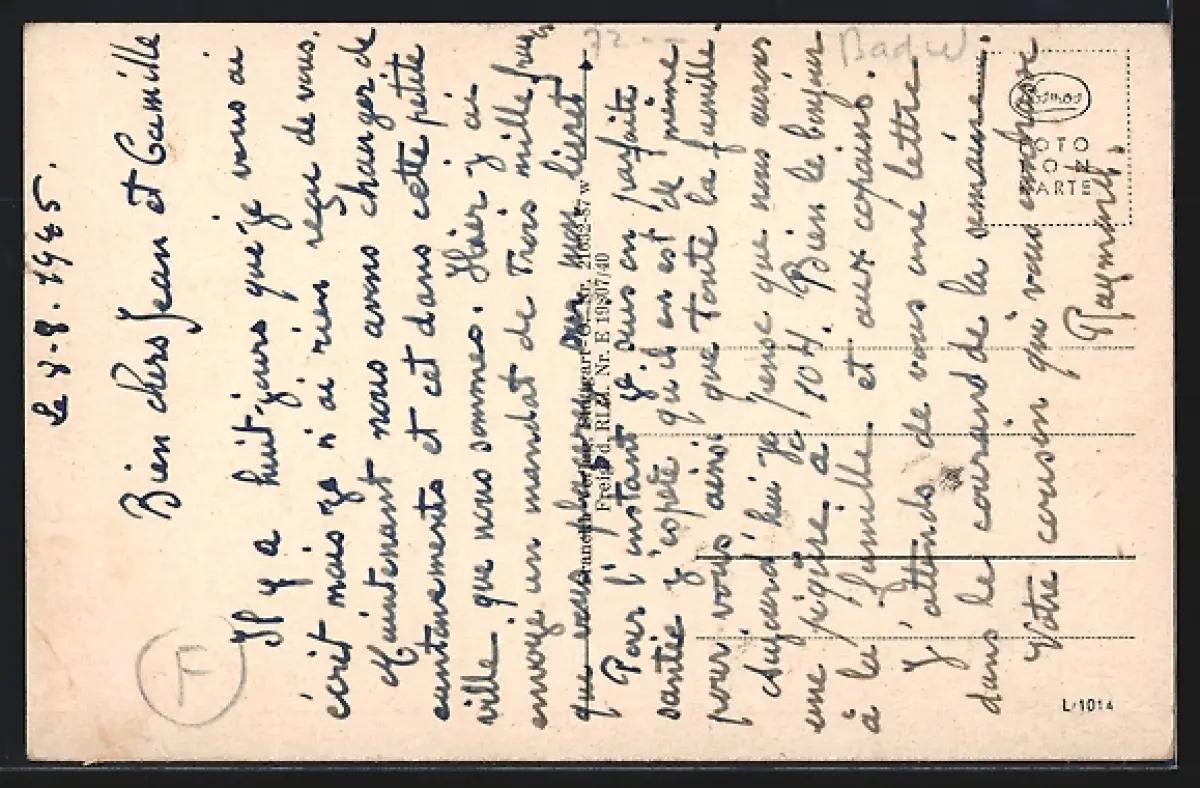 Le 8-9-1945.
Bien chers Jean et Camille
Il y a huit jours que je vous ai
écrit mais je n'ai rien reçu de vous.
Maintenant nous avons changer de
cantonements et cet dans cette petite
ville que nous sommes. Hièr j'ai
envoye un mandat de Trois mille frs,
que vous sur mon livret
Pour l'instant je suis en parfaite
santée j'espète qu'il en est de même
pour vous ainsi que toute la famille.
Aujourd'hui je pense que nous aurons
une piqure a 10 H. Bien le bonjour
à la famille et aux copains.
J'attends de vous une lettre
dans le courand de la semaine.
Votre cousin qui vous embrasse
Raymond.
Freigd. d. RLM. Nr. E 19807/40
FOTO
KARTE
L/1014
77
Bad W
T